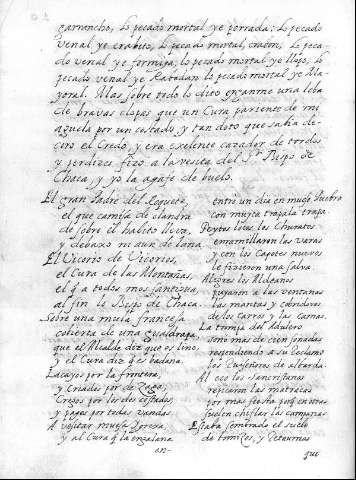 garrancho, lo pecado mortal ye porrada: lo pecado
venal ye crabito, lo pecado mortal, crabon, lo peca-
do venal ye formiga; lo pecado mortal ye llopo, lo
pecado venal ye Rabadan lo pecado mortal ye Ma-
yoral. Mas sobre todo lo dito oyanme una loba
de bravas clopas que un Cura pariente de mi
aguela por un costado, y tan doto que sabia de-
ciro el Credo, y era exelente cazador de tordos
y perdizes fizo a la vesita del Sr. Bispo de
Chaca, y yo la agafe de buelo.
El gran Padre del Roquete
el que camisa de
de sobre el habito lleva,
y debaxo ni aun de lana.
El Vicario de Vicarios,
el Cura de las Montañas,
el q a todos mos santigua
al fin lo Bispo de Chaca.
Sobre una mula francesa
cubierta de una gualdrapa
que el Alcalde diz que es lino,
y el Cura diz q es badana.
Lacayos por la frontera,
y Criados por de zaga,
Cregos por los dos costados
y pages por todas vandas.
A vesitar muesa Igresa,
y al Cura q la engalana
en-
entró un dia en mueso Puebro
con mujta trapala trapa.
los Churatos
enramillaron las varas
y con los Capotes nuevos
le ficieron una salva
los Aldeanos
a las ventanas
las mantas y cubridores
de los carros y las camas.
La trompa del
sonó mas de cien
respondiendo a su
los de albarda.
Al eco los Sancristanes
repicaron las matracas
por mas fiesta porq en otras
suelen chiflar las campanas
Estaba sembrado el suelo
de tomizos, y
que